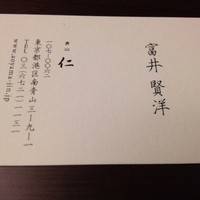 富井 賢洋
青山
仁
一〇七-〇〇六二
東京都港区南青山三-九-一
TEL 〇三六七三二一一三一
aoyama-jin.jp